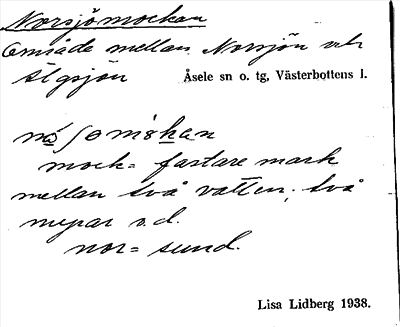 Norsjömockan
Område mellan Norsjön och
Älgsjön Åsele sn o. tg, Västerbottens l.
mock= fastare mark
mellan två vatten, två
myrar o.d.
nor= sund.
Lisa Lidberg 1938.